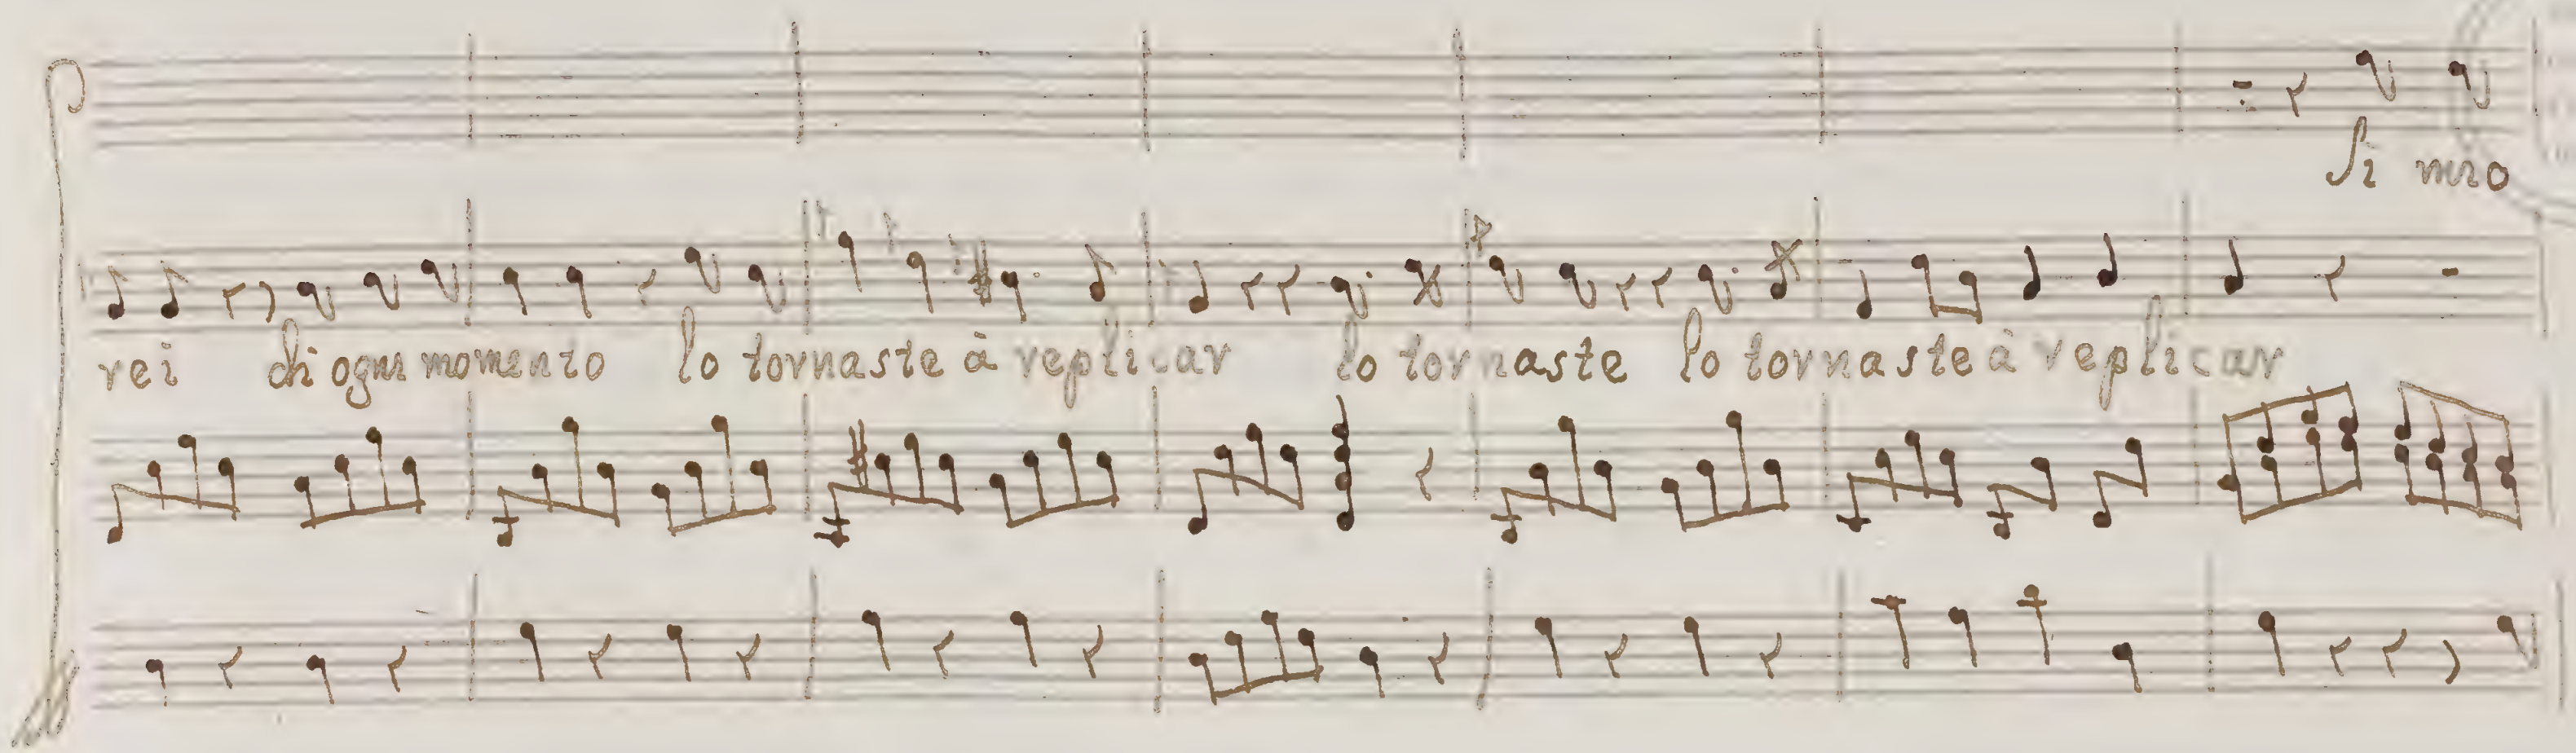 Si mio
rei di ogni momento lo tornaste à replicar lo tornaste lo tornaste à replicar